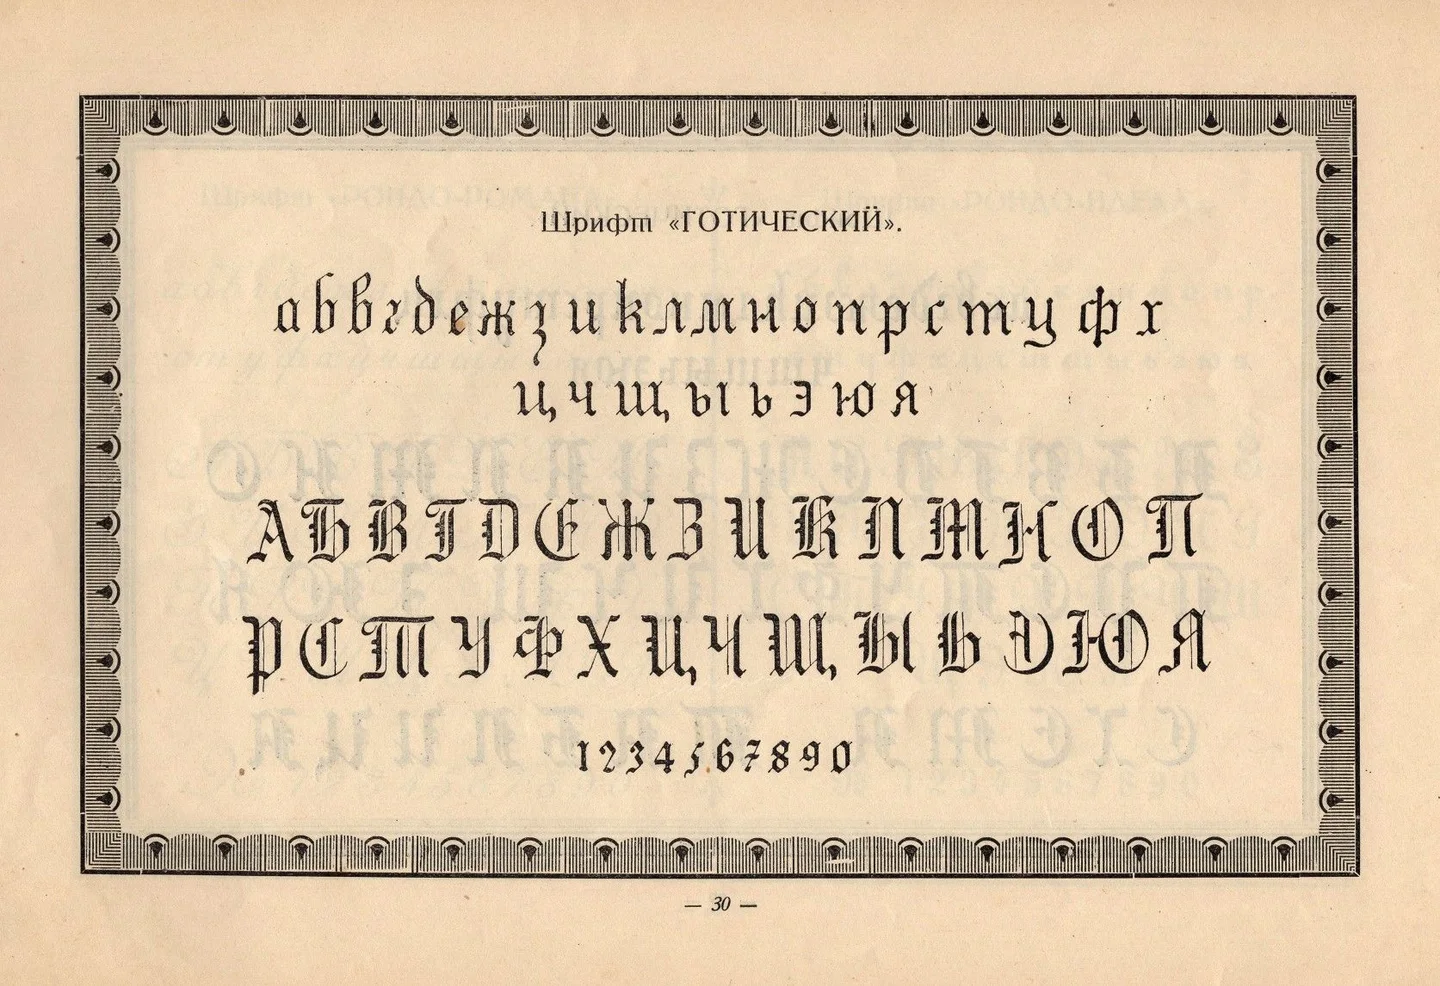 Шрифт «ГОТИЧЕСКИЙ».
абвгдежзиклмнопрстуфх
цчщыьэюя
АБВГДЕЖЗИКЛМНОП
РСТУФХЦЧЩЫЬЭЮЯ
1234567890
— 30 —